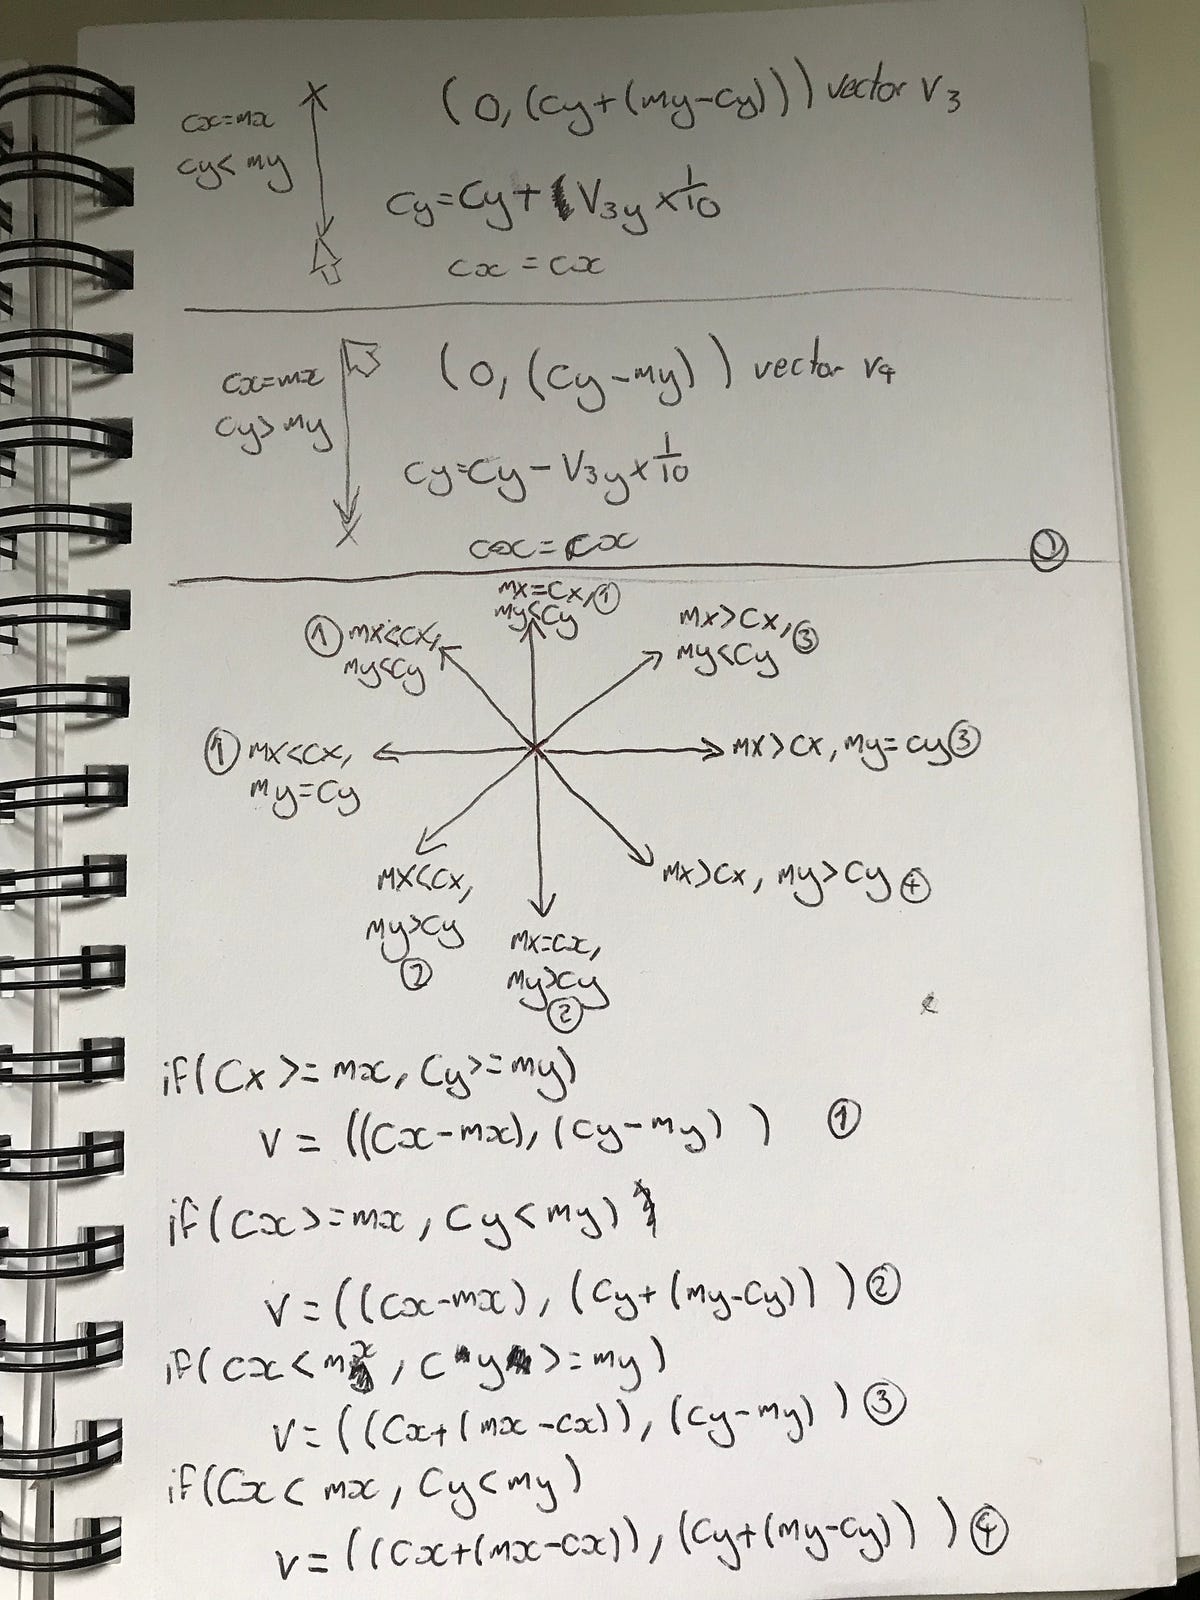 cx=mx
cy<my
(0,(cy+(my-cy))) vector v3
cy=cy+V3y×1/10
cx=cx
cx=mx
cy>my
(0,(cy-my)) vector v4
cy=cy-V3y×1/10
cx=cx
①
mx=cx, ①
my<cy
① mx<cx,
my<cy
mx>cx, ③
my<cy
① mx<cx,
my=cy
mx>cx, my=cy ③
mx<cx,
my>cy
②
mx=cx,
my>cy
②
mx>cx, my>cy ④
if(cx>=mx, cy>=my)
v=((cx-mx),(cy-my)) ①
if(cx>=mx, cy<my)
v=((cx-mx),(cy+(my-cy))) ②
if(cx<mx, cy>=my)
v=((cx+(mx-cx)),(cy-my)) ③
if(cx<mx, cy<my)
v=((cx+(mx-cx)),(cy+(my-cy))) ④